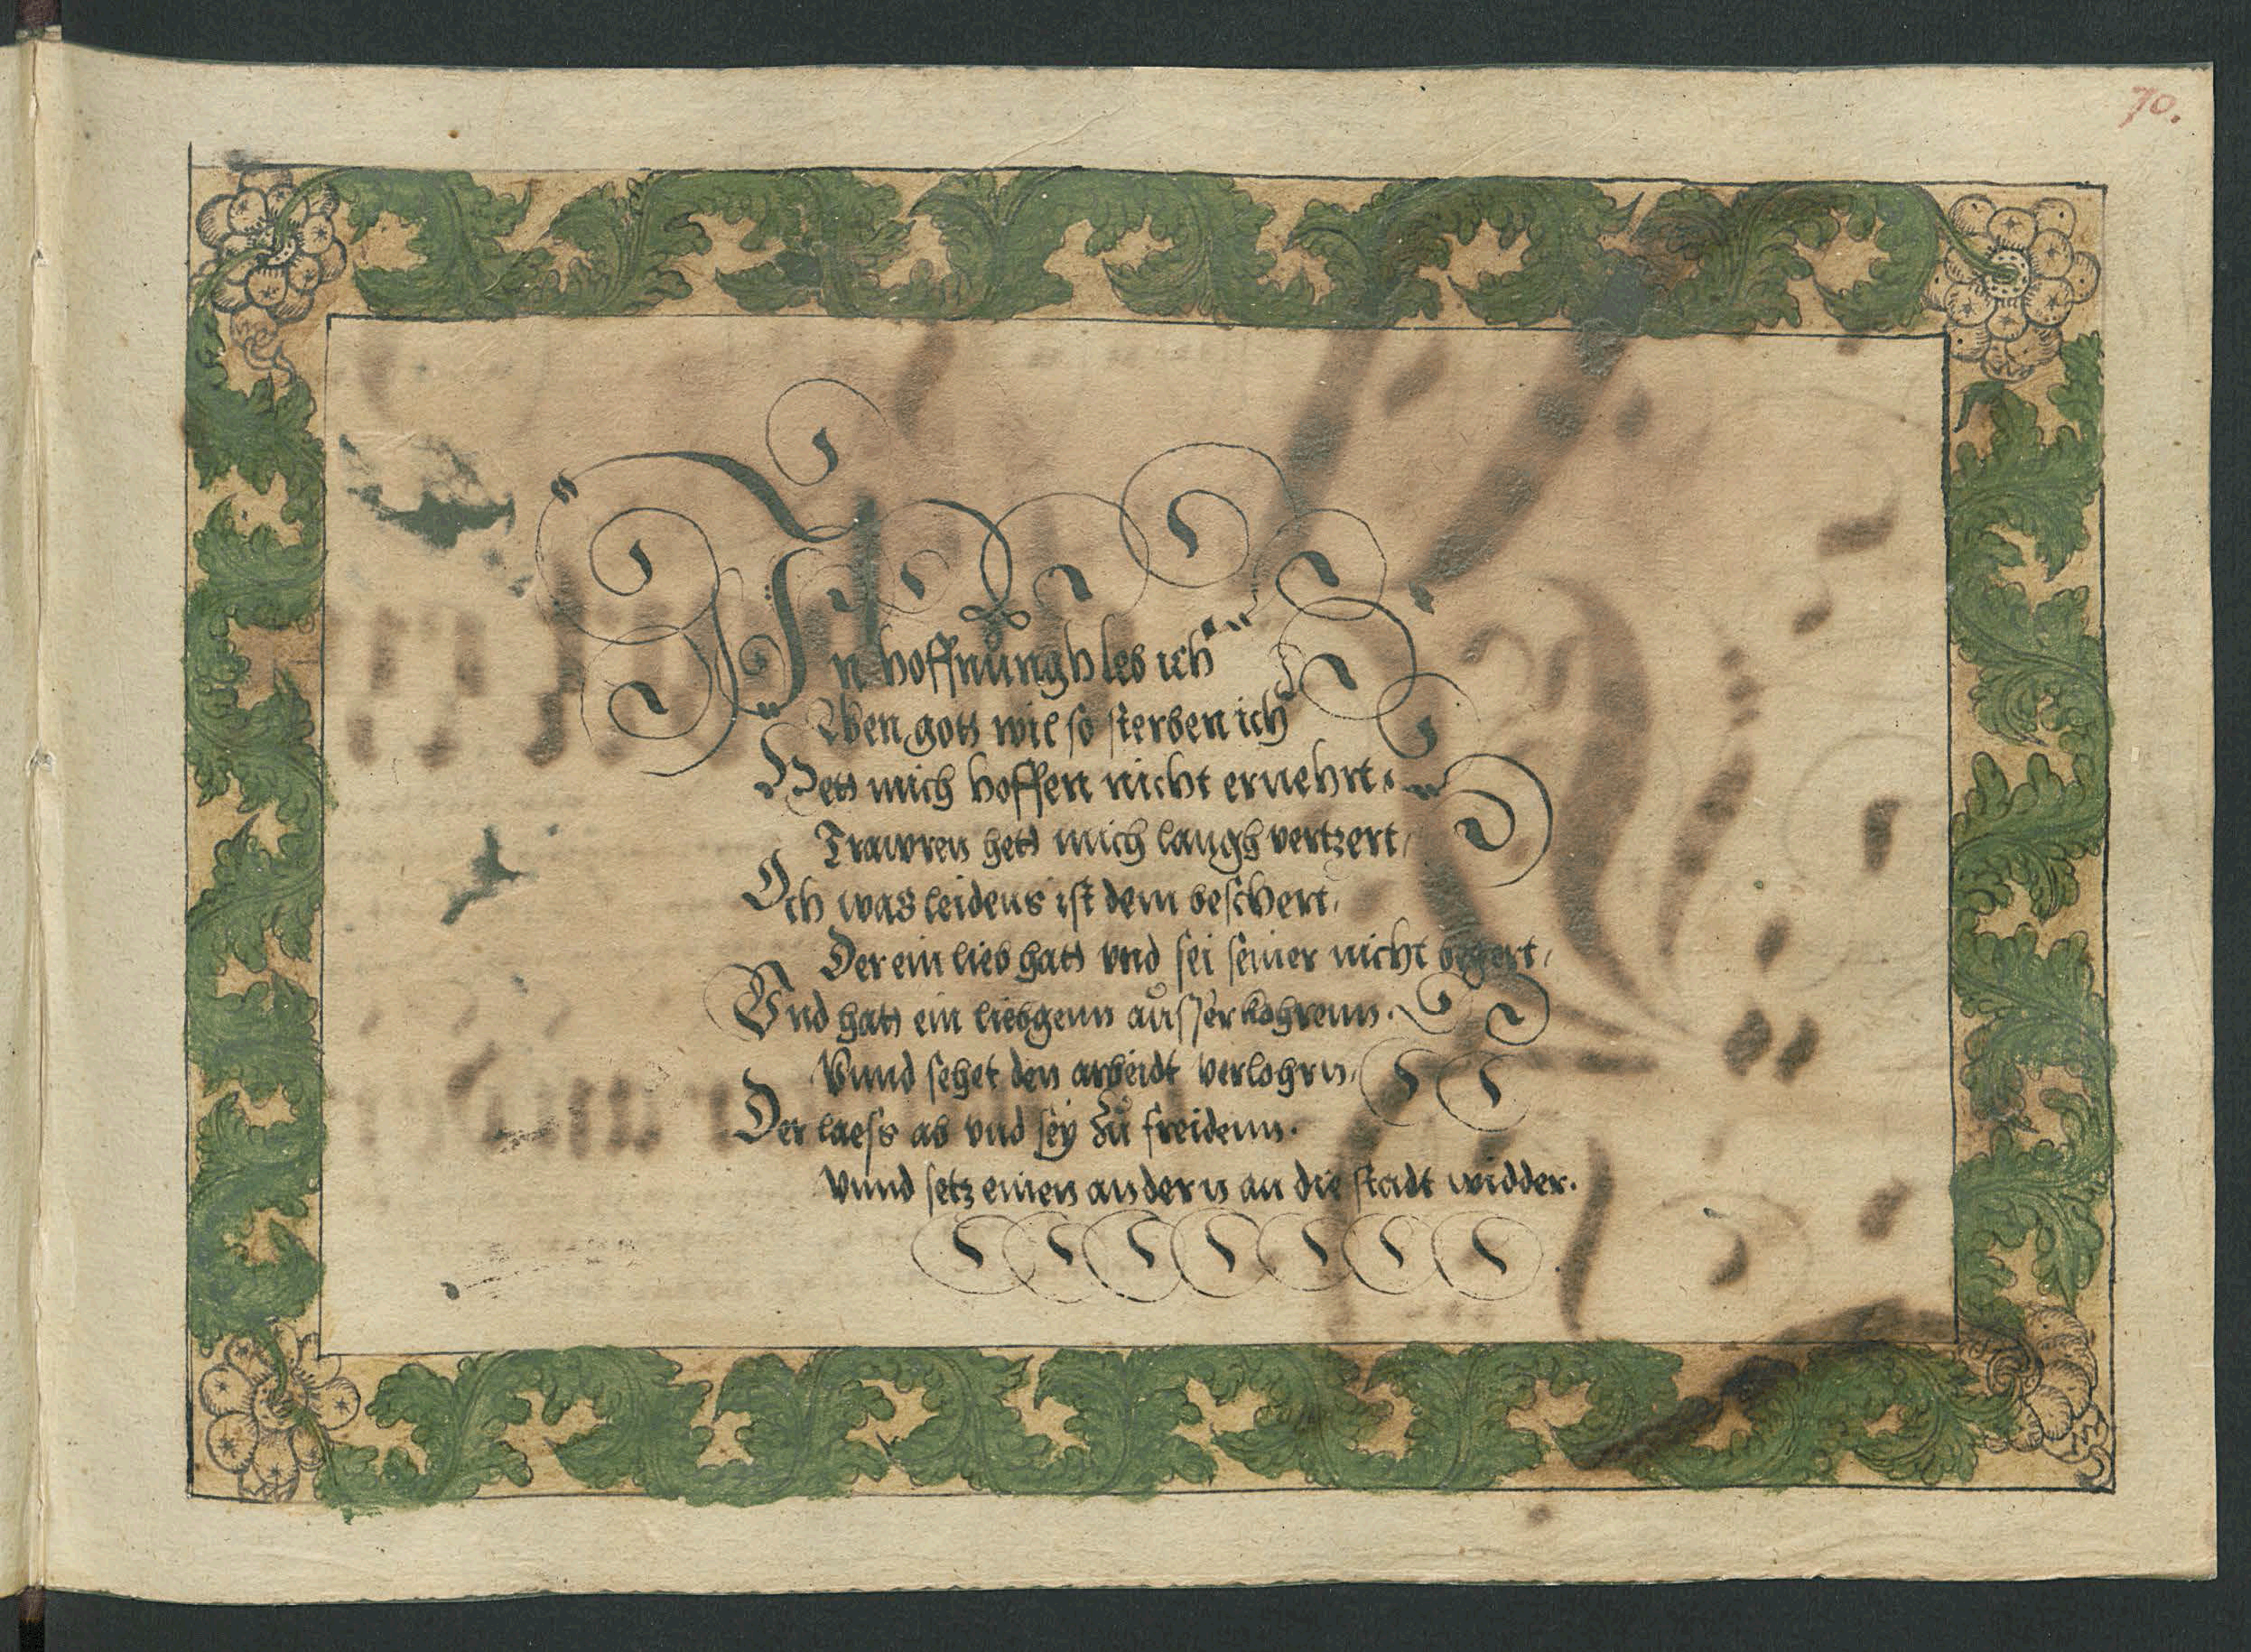 70.
In hoffnungh leb ich
Wen gott wil so sterben ich
Hett mich hoffen nicht ernehrt.
Trawren hett mich langh vertzert,
Och was leidens ist dem beschert,
Der ein lieb hatt vnd sei seiner nicht begert,
Vnd hatt ein liebgenn ausserkohrenn.
Vnnd sehet den arbeidt verlohrn,
Der laess ab vnd sey zu freidenn.
Vnnd setz einen andern an die stadt widder.